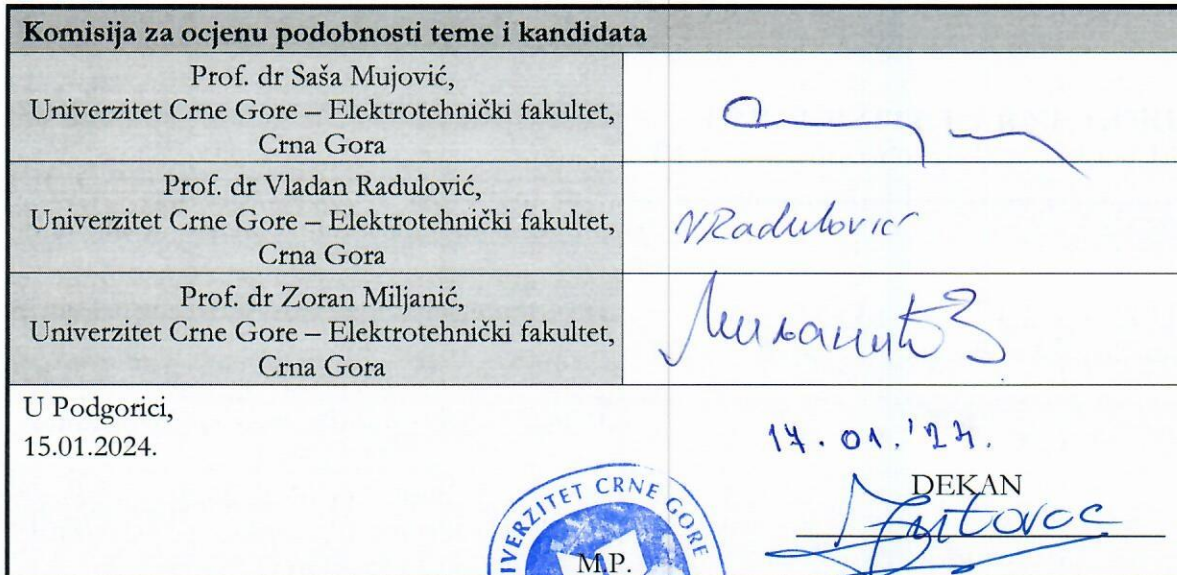 Komisija za ocjenu podobnosti teme i kandidata
Prof. dr Saša Mujović,
Univerzitet Crne Gore – Elektrotehnički fakultet,
Crna Gora
Prof. dr Vladan Radulović,
Univerzitet Crne Gore – Elektrotehnički fakultet,
Crna Gora
VRadulović
Prof. dr Zoran Miljanić,
Univerzitet Crne Gore – Elektrotehnički fakultet,
Crna Gora
U Podgorici,
15.01.2024.
DEKAN
UNIVERZITET CRNE GORE
M.P.